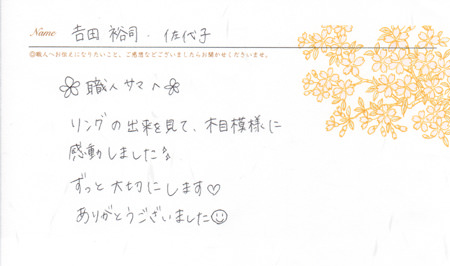 Name 吉田 裕司・佐代子
◎職人へお伝えになりたいこと、ご感想などございましたらお聞かせくださいませ。
職人サマへ
リングの出来を見て、木目模様に
感動しました
ずっと大切にします♡
ありがとうございました☺